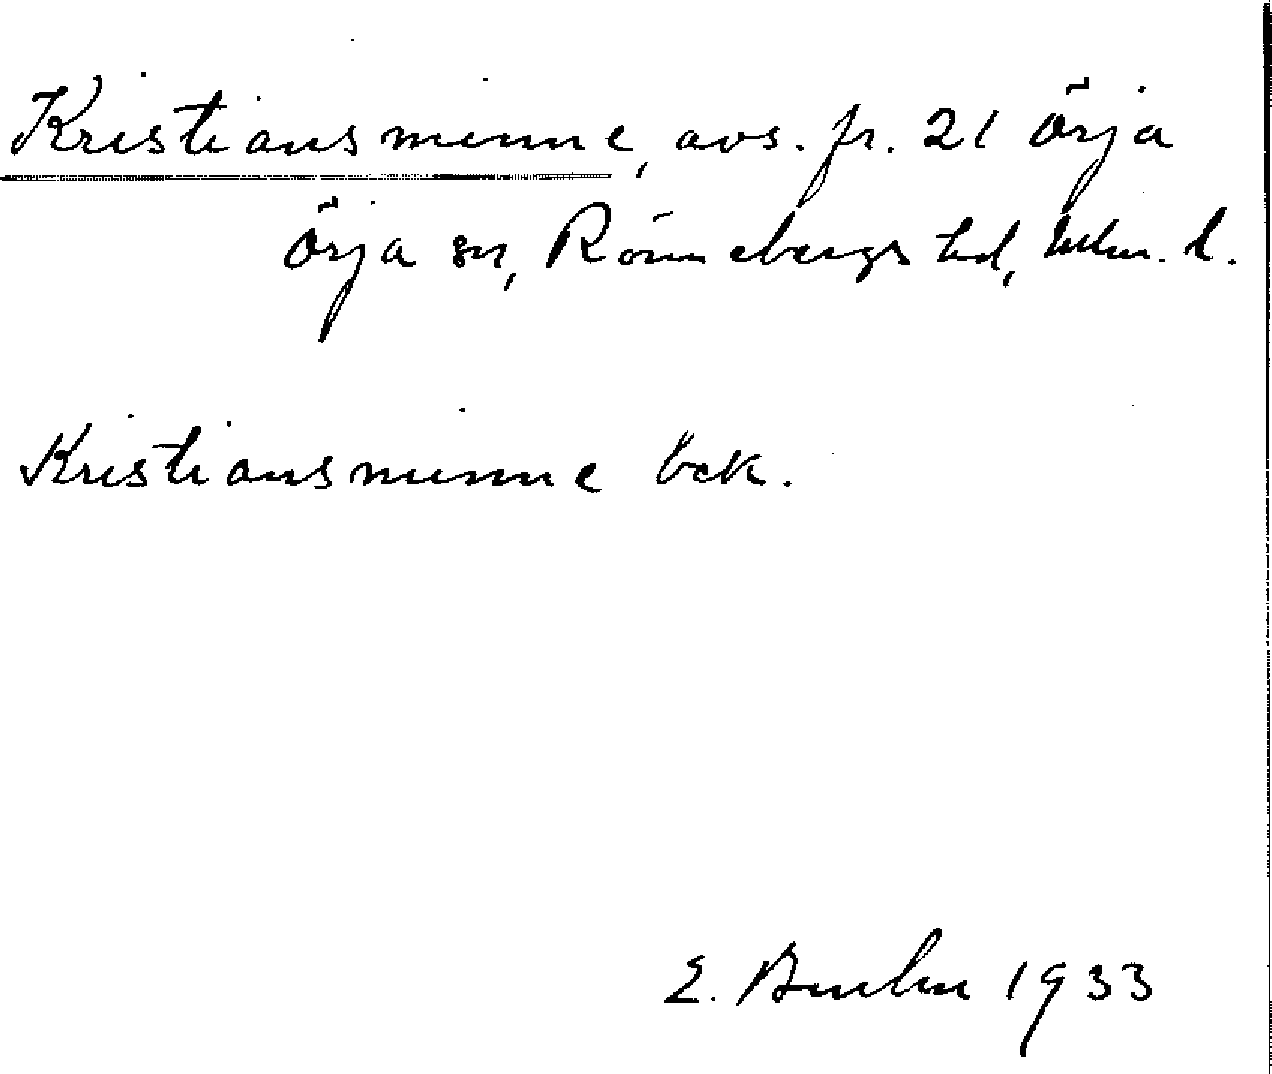 Kristiansminne, avs. fr. 21 Örja
Örja sn, Rönnebergs hd, Mlm. l.
Kristiansminne bck.
E. 1933